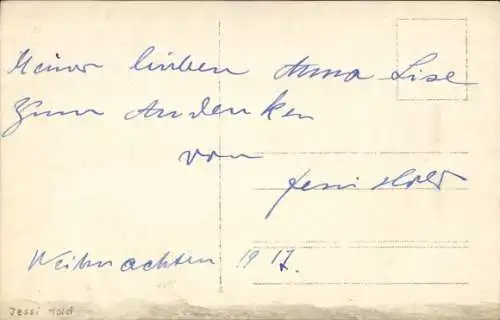 Meiner lieben Anna Lise
zum Andenken
von
Jessi Hold
Weihnachten 1917.
Jessi Hold